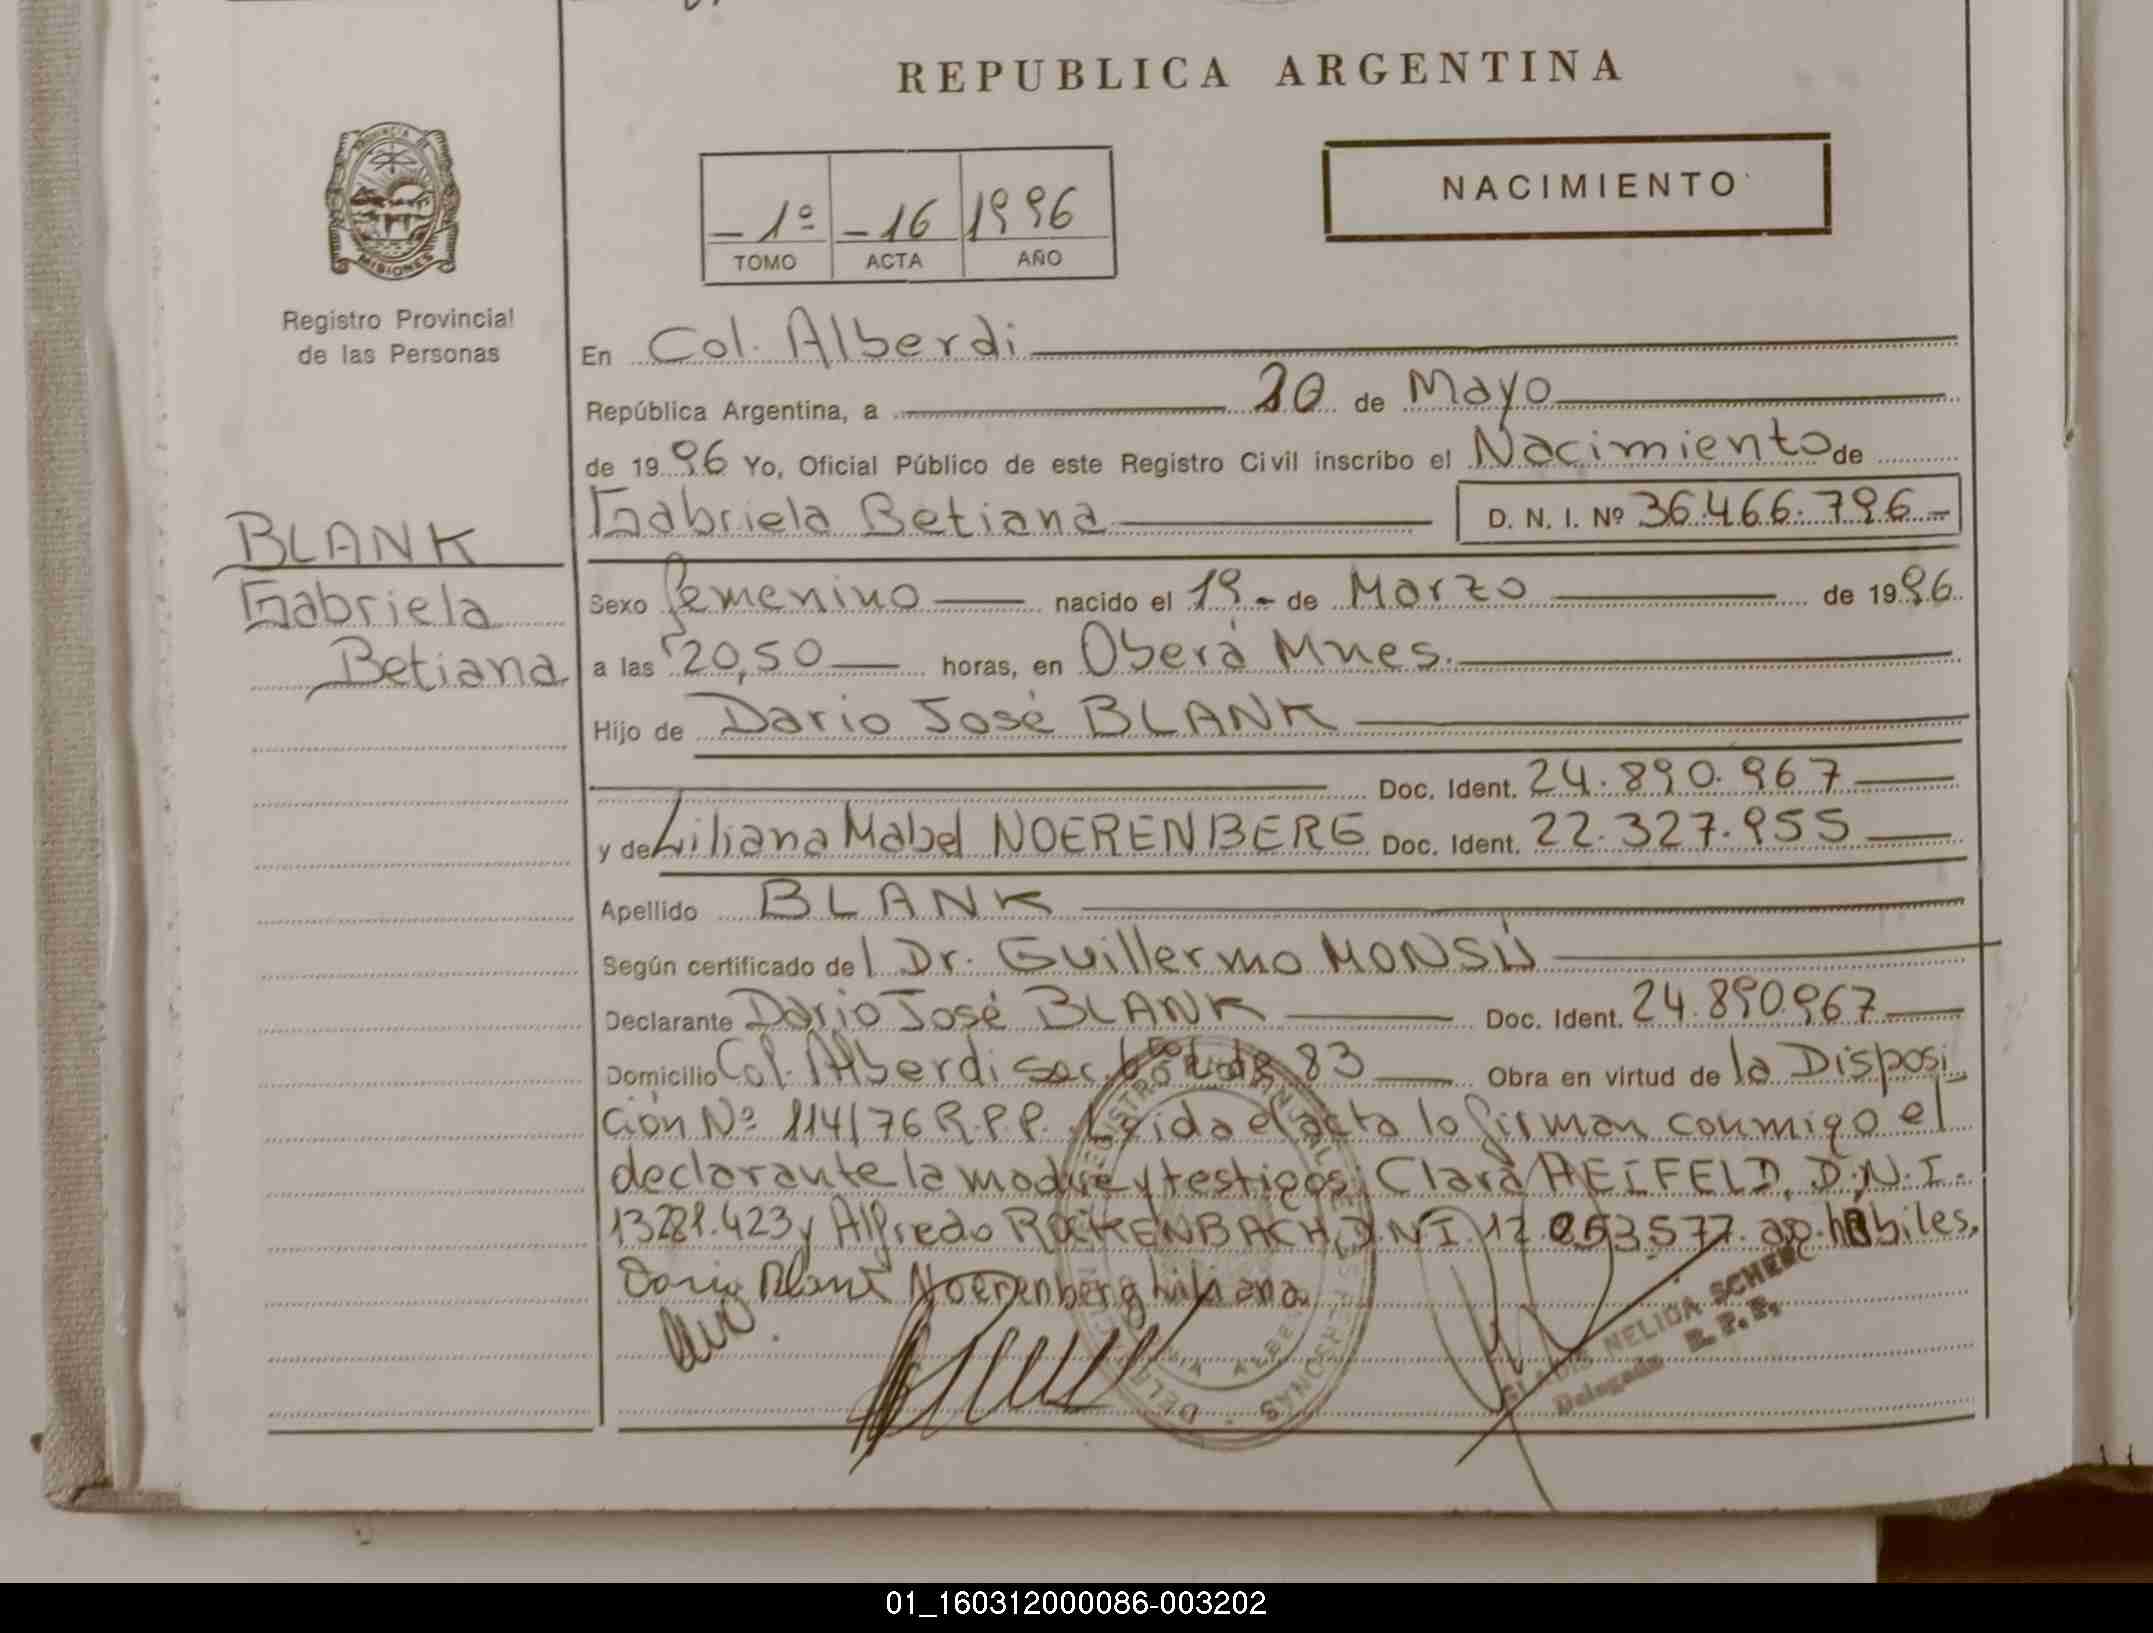 REPUBLICA ARGENTINA
PROVINCIA DE MISIONES
Registro Provincial
de las Personas
- 1º - 16 1996
TOMO ACTA AÑO
NACIMIENTO
En Col. Alberdi
República Argentina, a 20 de Mayo
de 1996 Yo, Oficial Público de este Registro Civil inscribo el Nacimiento de
Gabriela Betiana D. N. I. Nº 36.466.796.-
BLANK
Gabriela
Betiana
Sexo femenino nacido el 19.- de Marzo de 1996
a las 20,50 horas, en Oberá Mnes.
Hijo de Dario José BLANK
Doc. Ident. 24.890.967
y de Liliana Mabel NOERENBERG Doc. Ident. 22.327.955
Apellido BLANK
Según certificado del Dr. Guillermo MONSÚ
Declarante Dario José BLANK Doc. Ident. 24.890.967
Domicilio Col. Alberdi sac. 83 Obra en virtud de la Disposi
ción Nº 114/76 R.P.P. Leida el acta lo firman conmigo el
declarante la madre y testigos: Clara HEIFELD, D.N.I.
13281.423 y Alfredo D.N.I. 12. 577. ap. hábiles.
Dario Blank Noerenberg Liliana
NELIDA
Delegada R. P. P.
01_160312000086-003202